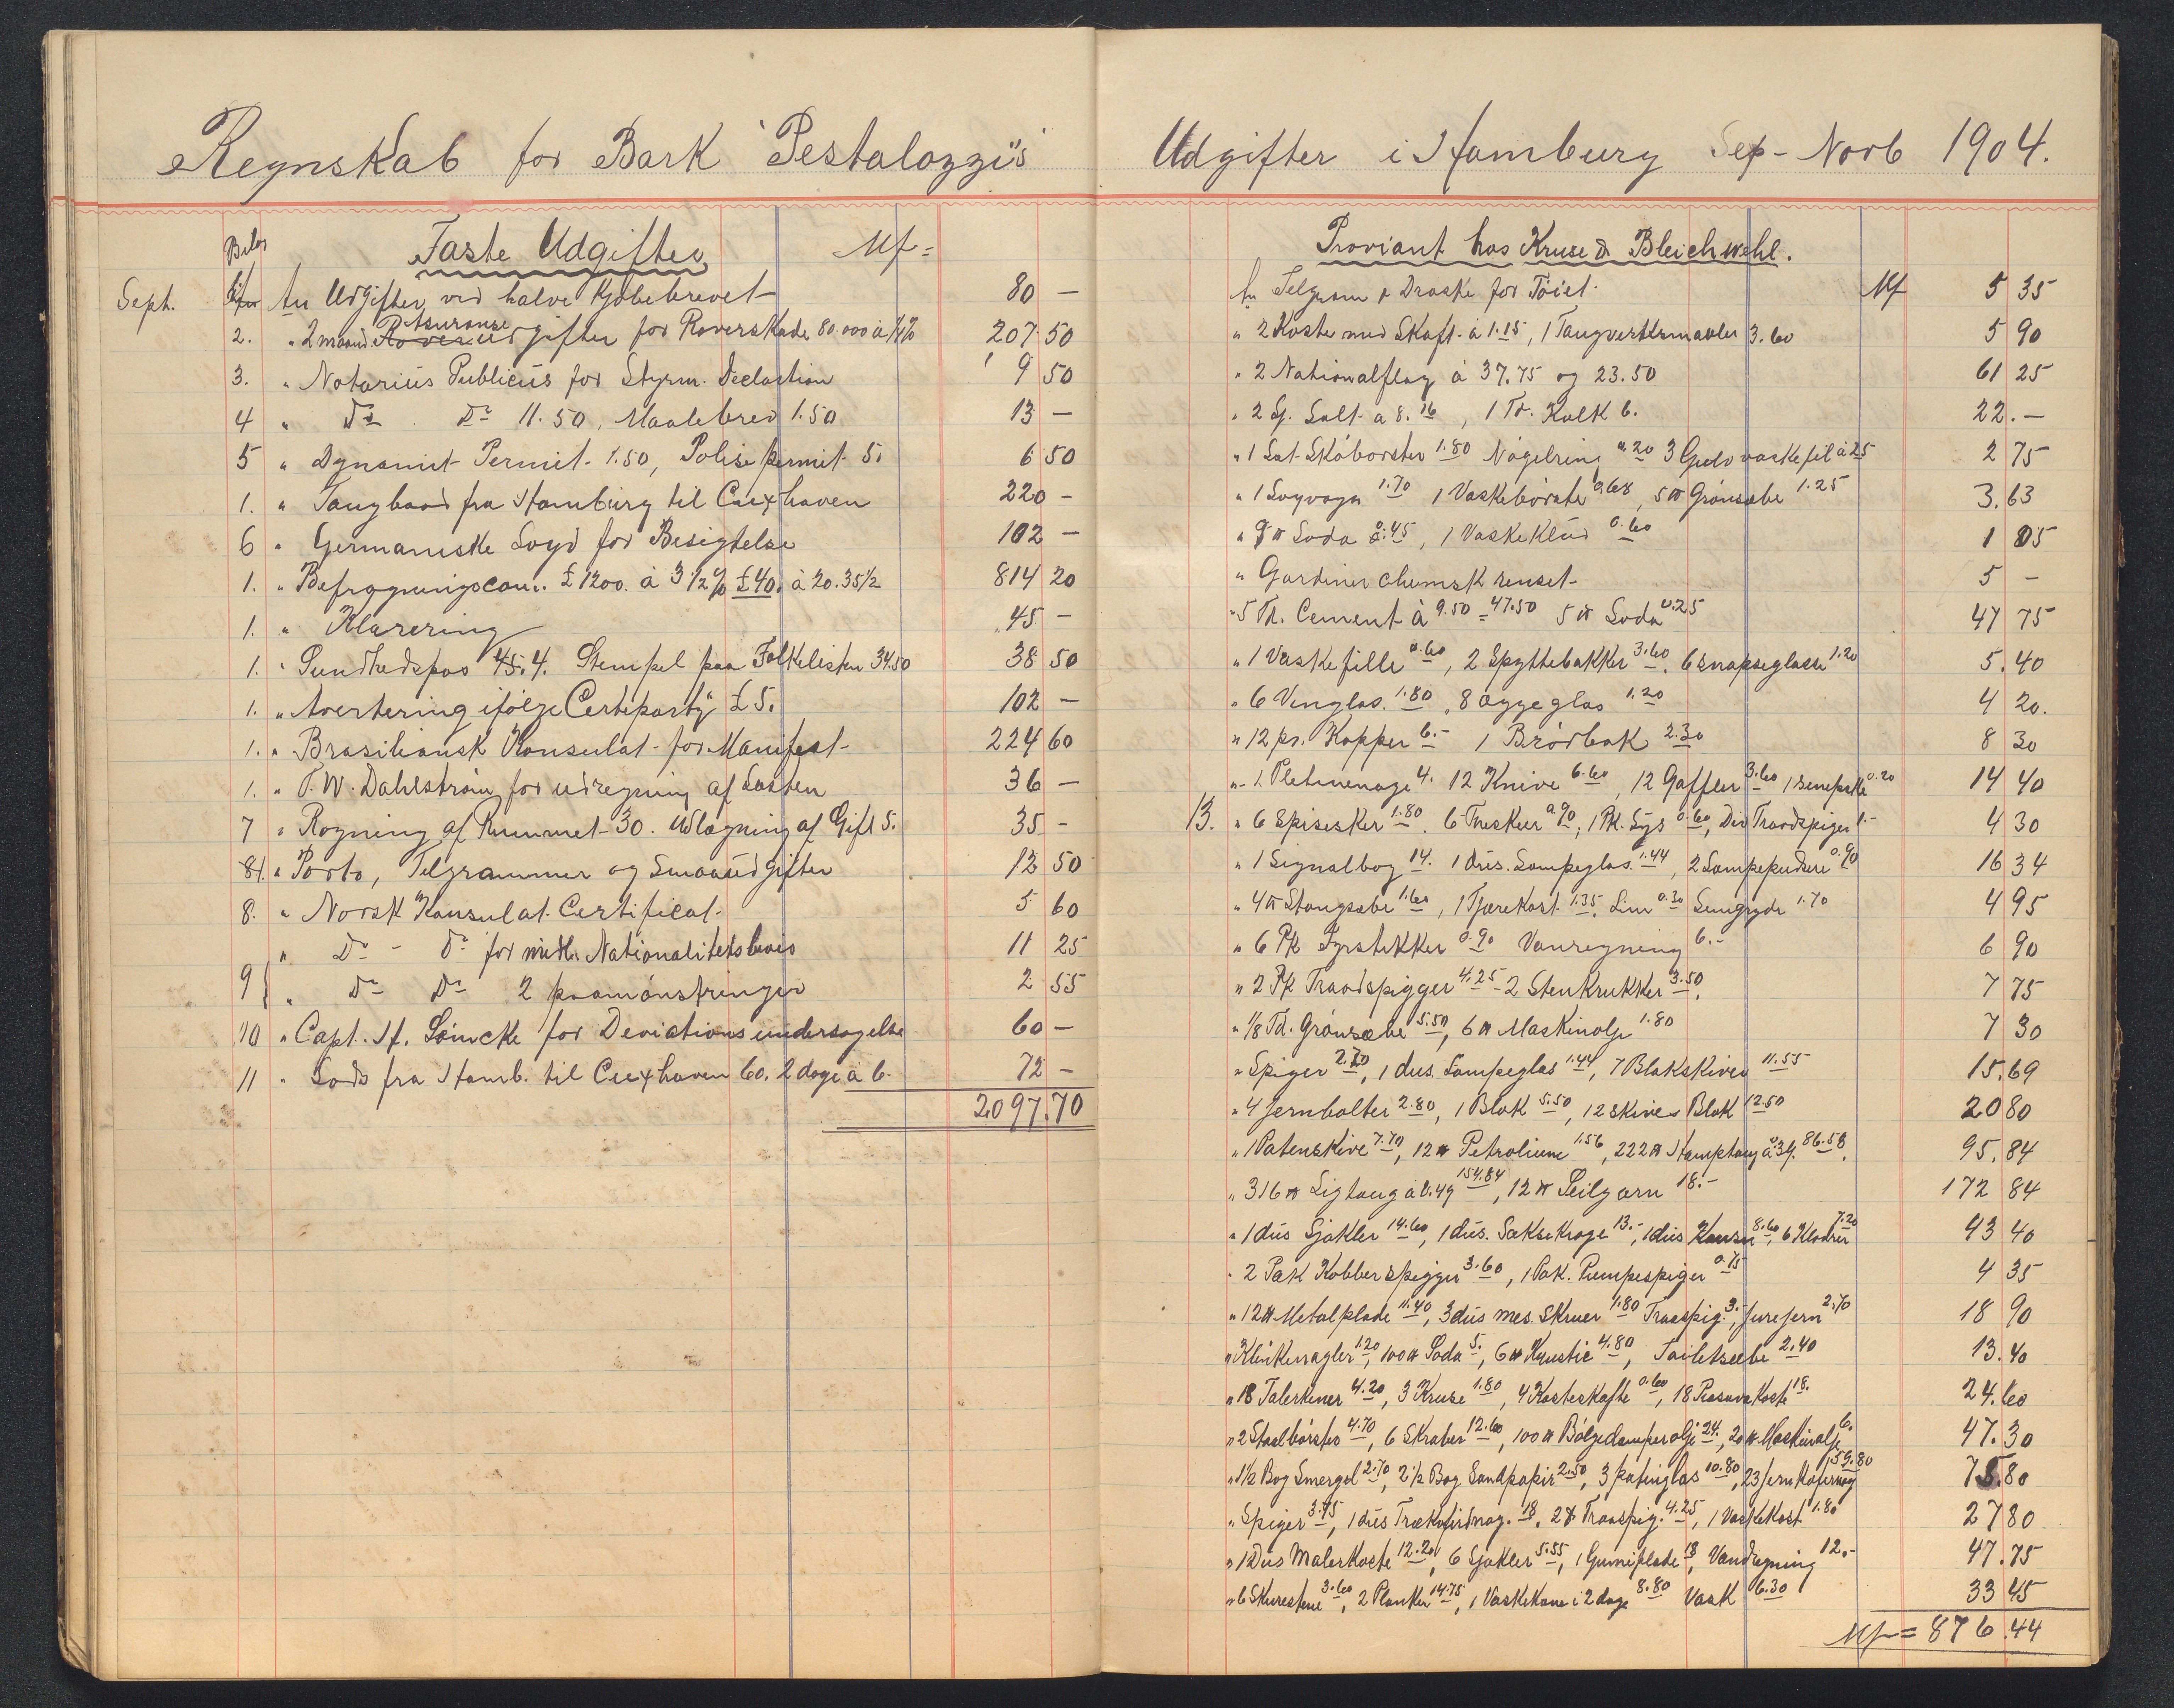 Regnskab for Bark "Pestalozzi's"
Faste Udgifter Mk =
Bilag
Sept. An Udgifter ved halve Kjøbebrevet 80 —
2. " 2 maand Assurance Udgifter for Roverskade 80.000 à 1/4% 207 50
3. " Notarius Publicus for Styrm. Declartion 9 50
4 " Do Do 11.50, Maalebrev 1.50 13 —
5 " Dynamit Permit 1.50, Polise permit 5. 6 50
1. " Taugbaad fra Hamburg til Cuxhaven 220 —
6 " Germaniske Loyd for Besigtelse 102 —
1. " Befragningscom. £ 1200. à 3 1/2 % £40. à 20.35 1/2 814 20
1. " Klarering 45 —
1. " Sundhedspas 4. Stempel paa Folkelisten 34.50 38 50
1. " Avertering ifølge Certeparty £ 5. 102 —
1. " Brasiliansk Konsulat for Manifest 224 60
1. " T. W. Dahlstrøm for udregning af Lasten 36 —
7 " Røgning af Rummet 30. Udlægning af Gift 5. 35 —
81. " Porto, Telgrammer og Smaaudgifter 12 50
8. " Norsk Konsulat Certificat. 5 60
" Do - Do for midl. Nationalitetsbevis 11 25
9 " Do Do 2 paamønstringer 2 55
10 " Capt. H. Lömcke for Deviationsundersøgelse 60 —
11 " Lods fra Hamb. til Cuxhaven 60. 2 dage à 6. 72 —
2097.70
Udgifter i Hamburg Sep - Novb 1904.
Proviant hos Kruse & Bleichwehl.
An Telgram & Droske for Tøiet. Mk 5 35
" 2 Koste med Skaft à 1.15, 1 Taugverksmaatte 3.60 5 90
" 2 Nationalflag à 37.75 og 23.50 61 25
" 2 Sz. Salt à 8., 1 Td. Kalk 6. 22. —
" 1 Sat Skobørster 1.80 Nøgelring 0.20 3 Gulvvaskefil à 25 2 75
" 1 1.70 1 Vaskebørste 0.68, 5 ℔ Grønsæbe 1.25 3.63
" 9 ℔ Soda 0.45, 1 Vaskeklud 0.60 1 05
" Gardiner chemisk renset 5 —
" 5 Td. Cement à 9.50 = 47.50 5 ℔ Soda 0.25 47 75
" 1 Vaskefille 0.60, 2 Spyttebakker 3.60. 6 Snapseglasse 1.20 5.40
" 6 Vinglas. 1.80, 8 Æggeglas 1.20 4 20.
" 12 pr. Kopper 6.- 1 Brødbak 2.30 8 30
" 1 Pletmenage 4. 12 Knive 6.60, 12 Gaffler 3.60 1 0.20 14 40
13. " 6 Spiseskeer 1.80. 6 Theskeer 0.90, 1 Pk. Lys 0.60, Div Traadspiger 1.- 4 30
" 1 Signalbog 14. 1 dus. Lampeglas. 1.44, 2 Lampepudsere 0.90 16 34
" 4 ℔ Stangsæbe 1.60, 1 Tjærekost 1.35. Lim 0.30 1.70 4 95
" 6 Pk Fyrstikker 0.90 Vanregning 6.- 6 90
" 2 Pk Traadspigger 4.25 - 2 Stenkrukker 3.50. 7 75
" 1/8 Td. Grønsæbe 5.50, 6 ℔ Maskinolje 1.80 7 30
" Spiger 2.70, 1 dus. Lampeglas 1.44, 7 Blokskiver 11.55 15.69
" 4 Jernbolter 2.80, 1 Blok 5.50, 1 2 Skives Blok 12.50 20 80
" 1 Patenskive 7.70, 12 ℔ Petrolium 1.56, 222 ℔ Hamptaug à 39. 86.58. 95.84
" 316 ℔ Ligtaug à 0.49 154.84, 12 ℔ Seilgarn 18.- 172 84
" 1 dus Sjakler 14.60, 1 dus. Saksekroge 13.-, 1 dus Kauser 8.60, 6 Kloder 7.20 43 40
" 2 Pak Kobberspigger 3.60, 1 Pak. Pumpespiger 0.75 4 35
" 12 ℔ Metalplade 11.40, 3 dus mes. Skruer 1.80 Traaspig. 3.-, 2.70 18 90
" Klinkernagler 1.20, 100 ℔ Soda 5., 6 ℔ Kaustic 4.80, Toiletsæbe 2.40 13.40
" 18 Talerkener 4.20, 3 Kruse 1.80, 4 Kosteskafte 0.60, 18 Piasavakoste 18. 24.60
" 2 Staalbørster 4.70, 6 Skraber 12.60, 100 ℔ Bølgedæmperolje 24., 20 ℔ Maskinolje 6. 47.30
" 1 1/2 Bog Smergel 2.70, 2 1/2 Bog Sandpapir 2.50, 3 10.80, 23 59.80 75.80
" Spiger 3.75, 1 dus 18. 2 ℔ Traaspig. 4.25, 1 Vaskekost 1.80 27 80
" 1 Dus Malerkoste 12.20, 6 Sjakler 5.55, 1 Gumiplade 18, Vandregning 12.- 47.75
" 6 Skurestene 3.60, 2 Planker 14.75, 1 Vaskekone i 2 dage 8.80 Vask 6.30 33 45
Mk = 876.44